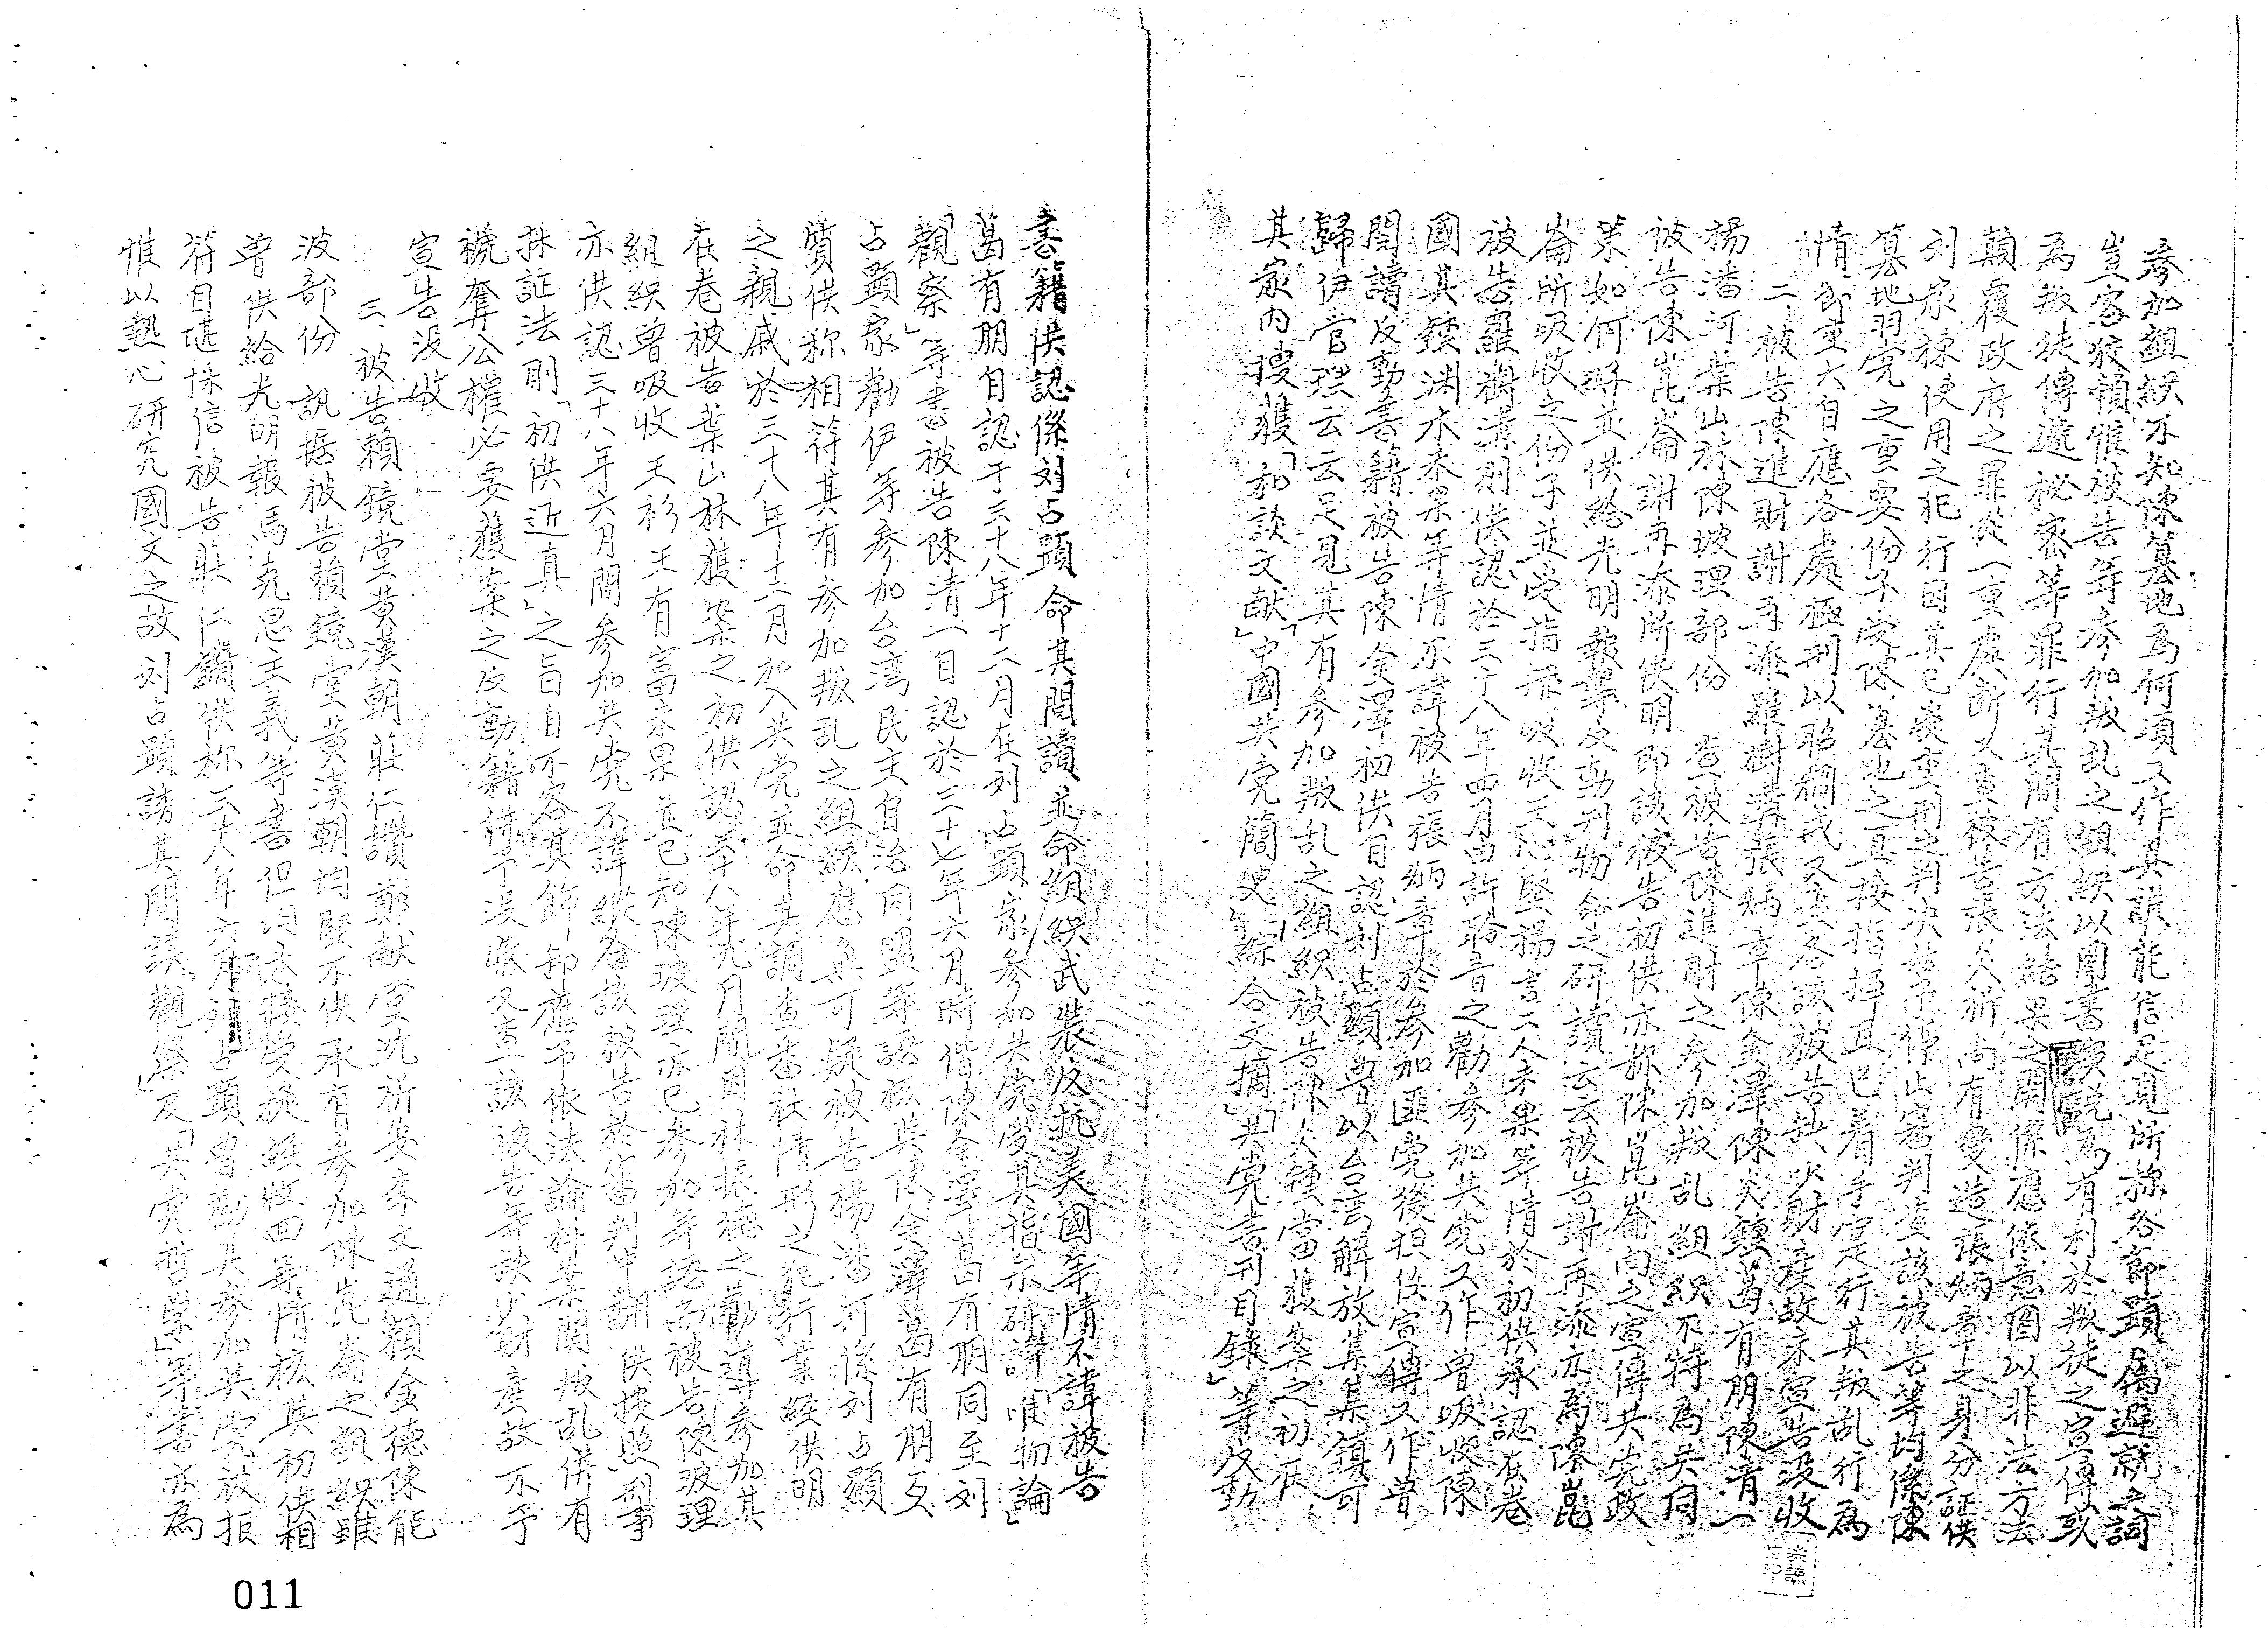 參加組織不知陳墓地為何項工作其誰能信足見所攝各節顯屬避就之詞
豈容狡賴惟被告等參加叛乱之組織以圖書演說為有利於叛徒之宣傳或
為叛徒傳遞秘密等罪行其間有方法結果之關係應依意圖以非法方法
顛覆政府之罪從一重處斷又查被告張炎祈尚有变造張炳章之身分証供
刘家棟使用之犯行因其已受重刑之判决故予停止審判查該被告等均係陳
墓地羽党之重要份子受陳墓地之直接指揮且已着手实行其叛乱行為
情節重大自應各處極刑以昭炯戒又查各該被告缺少財產故未宣告沒收
二、被告陳進財謝再添羅樹溝張炳章陳金澤陳火鏗葛有朋陳清一
楊潘河葉山林陳坡理部份 查被告陳進財之參加叛乱組织不特為共同
被告陳崑崙謝再添所供明即該被告初供亦称陳崑崙向之宣傳共党政
策如何好並供給光明報等反動刊物命之研讀云云被告謝再添亦為陳崑
崙所吸收之份子並受指示吸收王　堅楊　二人未果等情於初供承認在卷
被告羅樹溝則供認於三十八年四月由許聆音之勸參加共党又作曾吸收陳
國其鎮渊水未果等情不諱被告張炳章於參加匪党後担任宣傳又作曾
閱讀反動書籍被告陳金澤初供自認刘占顯曾以台湾解放集集鎮可
歸伊管理云云足見其有參加叛乱之組织被告陳火鏗當獲案之初在
其家內搜獲「和談文献」「中國共党簡史」「綜合文摘」「共党書刊目錄」等反動
書籍供認係刘占顕命其閱讀並命組织武裝反抗美國等情不諱被告
葛有朋自認于三十八年十二月在刘占顕家參加共党受其指示研讀「唯物論」
「觀察」等書被告陳清一自認於三十七年六月時偕陳金澤葛有朋同至刘
占顕家勸伊等參加台湾民主自治同盟等語核與陳金澤葛有朋互
質供称相符其有參加叛乱之組织應無可疑被告楊潘河係刘占顕
之親戚於三十八年十二月加入共党並命其調查番社情形之犯行業經供明
在卷被告葉山林獲案之初供認三十八年九月間因林振德之勸導參加其
組织曾吸收王衫王有富未果並已知陳玻理亦已參加等語而被告陳玻理
亦供認三十八年六月間參加共党不諱縱各該被告於審判中翻供按照刑事
採証法則「初供近真」之旨自不容其飾卸應予依法論科葉関叛乱併有
褫奪公權必要獲案之反動籍併予沒收又查該被告等缺少財產故不予
宣告沒收
三、被告賴鏡堂黄漢朝莊仁讚鄭献堂沈祈安李文通賴金德陳能
波部份 訊据被告賴鏡堂黄漢朝均堅不供承有參加陳崑崙之組织雖
曾供給光明報馬克思主義等書但均未接受旋經收回等情核與初供相
符自堪採信被告莊仁讚供称三十八年六月刘占顕曾勸其參加共党被拒
惟以熱心研究國文之故刘占顕誘其閱讀「觀察」及「共党哲學」等書亦為
011